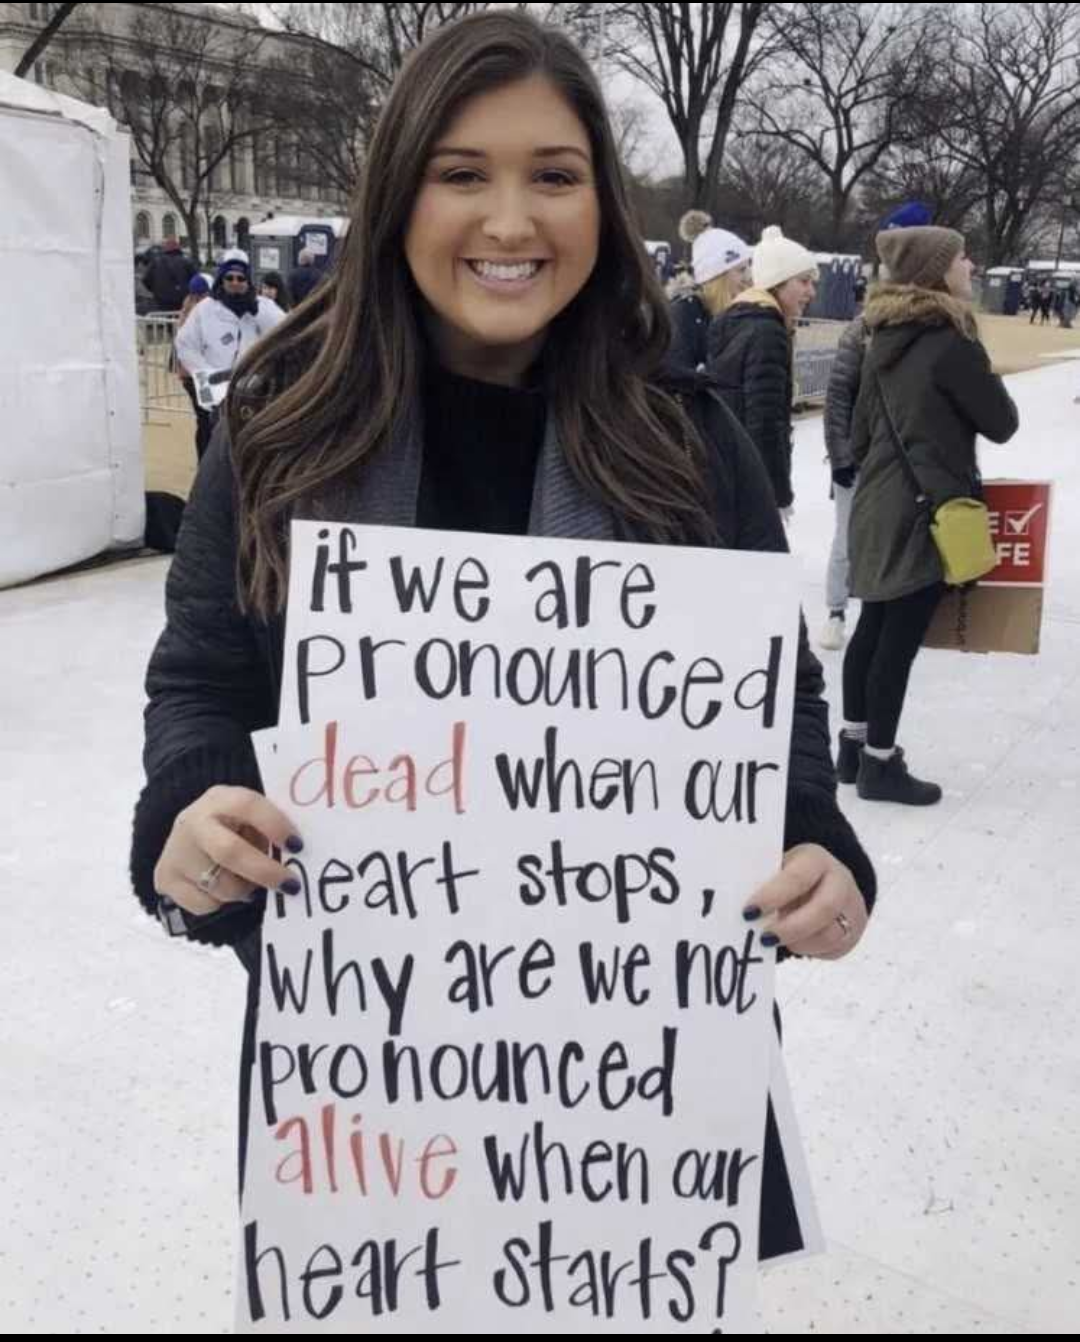 if we are
pronounced
dead when our
heart stops,
why are we not
pronounced
alive when our
heart starts?
FE